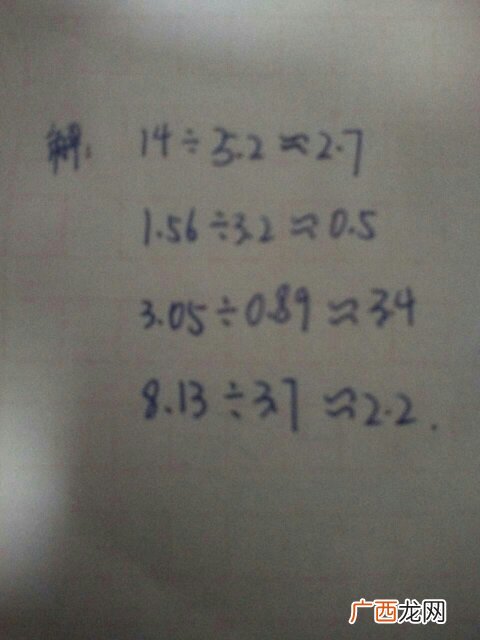 解: 14÷5.2≈2.7
1.56÷3.2≈0.5
3.05÷0.89≈3.4
8.13÷3.7≈2.2.
广西龙网